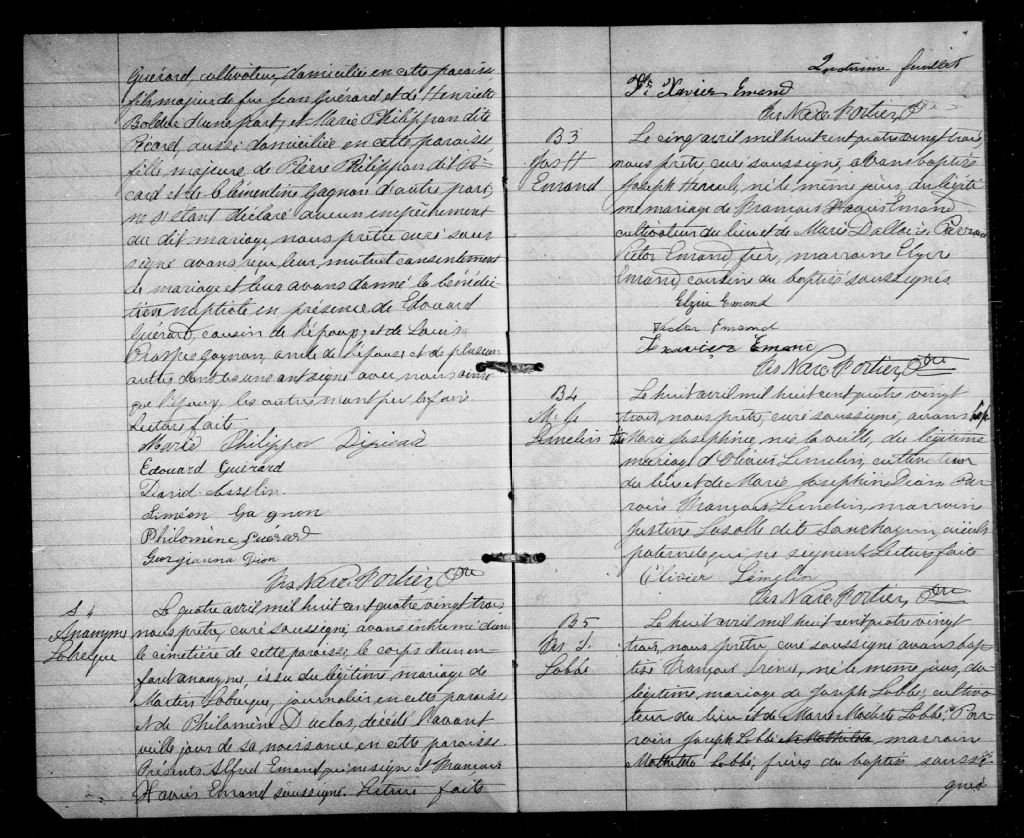 Guérard, cultivateur, domiciliée en cette paroisse
fils majeur de feu Jean Guérard et de Henriette
Bolduc d'une part, et Marie Philippon dite
Picard, aussi domiciliée en cette paroisse,
fille majeure de Pierre Philippon dit Pi-
card et de Clémentine Gagnon d'autre part;
ne s'étant déclaré aucun empêchement
au dit mariage, nous prêtre curé sous-
signé avons reçu leur mutuel consentement
de mariage et leur avons donné la bénédic-
tion nuptiale en présence de Edouard
Guérard, cousin de l'époux, et de Louis
Gagnon, de l'épouse et de plusieurs
autres dont les uns ont signé avec nous ainsi
que l'époux, les autres n'ont pu le faire
Lecture faite
Marie Philippon
Edouard Guérard
David Asselin
Siméon Gagnon
Philomène Guérard
Georgianna Dion
Frs Narc. Fortier, Ptre
S 4
Anonyme
Labrecque
Le quatre avril mil huit cent quatre vingt trois
nous prêtre, curé soussigné, avons inhumé dans
le cimetière de cette paroisse, le corps d'un en-
fant anonyme, issu du légitime mariage de
Martin Labrecque, journalier en cette paroisse
& de Philomène Duclos, décédé l'avant
veille jour de sa naissance en cette paroisse.
Présents Alfred Emond qui ne signe et François
Xavier Emond soussigné. Lecture faite
feuillet
Fr. Xavier Emond
Frs Narc. Fortier, Ptre
B3
Jos H
Emond
Le cinq avril mil huit cent quatre vingt trois,
nous prêtre curé soussigné, avons baptisé
Joseph Hercule, né le même jour, du légiti-
me mariage de François Xavier Emond
cultivateur du lieu et de Marie Dallaire. Parrain
Victor Emond frère, marraine Elzire
Emond cousin du baptisé soussignés
Elzire Emond
Victor Emond
F. Xavier Emond
Frs Narc. Fortier, Ptre
B4
M. J.
Lemelin
Le huit avril mil huit cent quatre vingt
trois, nous prêtre, curé soussigné, avons bap-
tisé Marie Josephine, née la veille, du légitime
mariage d'Olivier Lemelin, cultivateur
du lieu et de Marie Josephine Dion. Par-
rain François Lemelin, marraine
Justine Lasalle dite Sanschagrin, aïeuls
paternels, qui ne signent. Lecture faite
Olivier Lemelin
Frs Narc. Fortier, Ptre
B5
Frs I.
Labbé
Le huit avril mil huit cent quatre vingt
trois, nous prêtre, curé soussigné avons bap-
tisé François Irénée, né le même jour, du
légitime mariage de Joseph Labbé, cultiva-
teur du lieu et de Marie Labbé. Par-
rain Joseph Labbé marraine
Mathilde Labbé, frères du baptisé soussi-
gnés